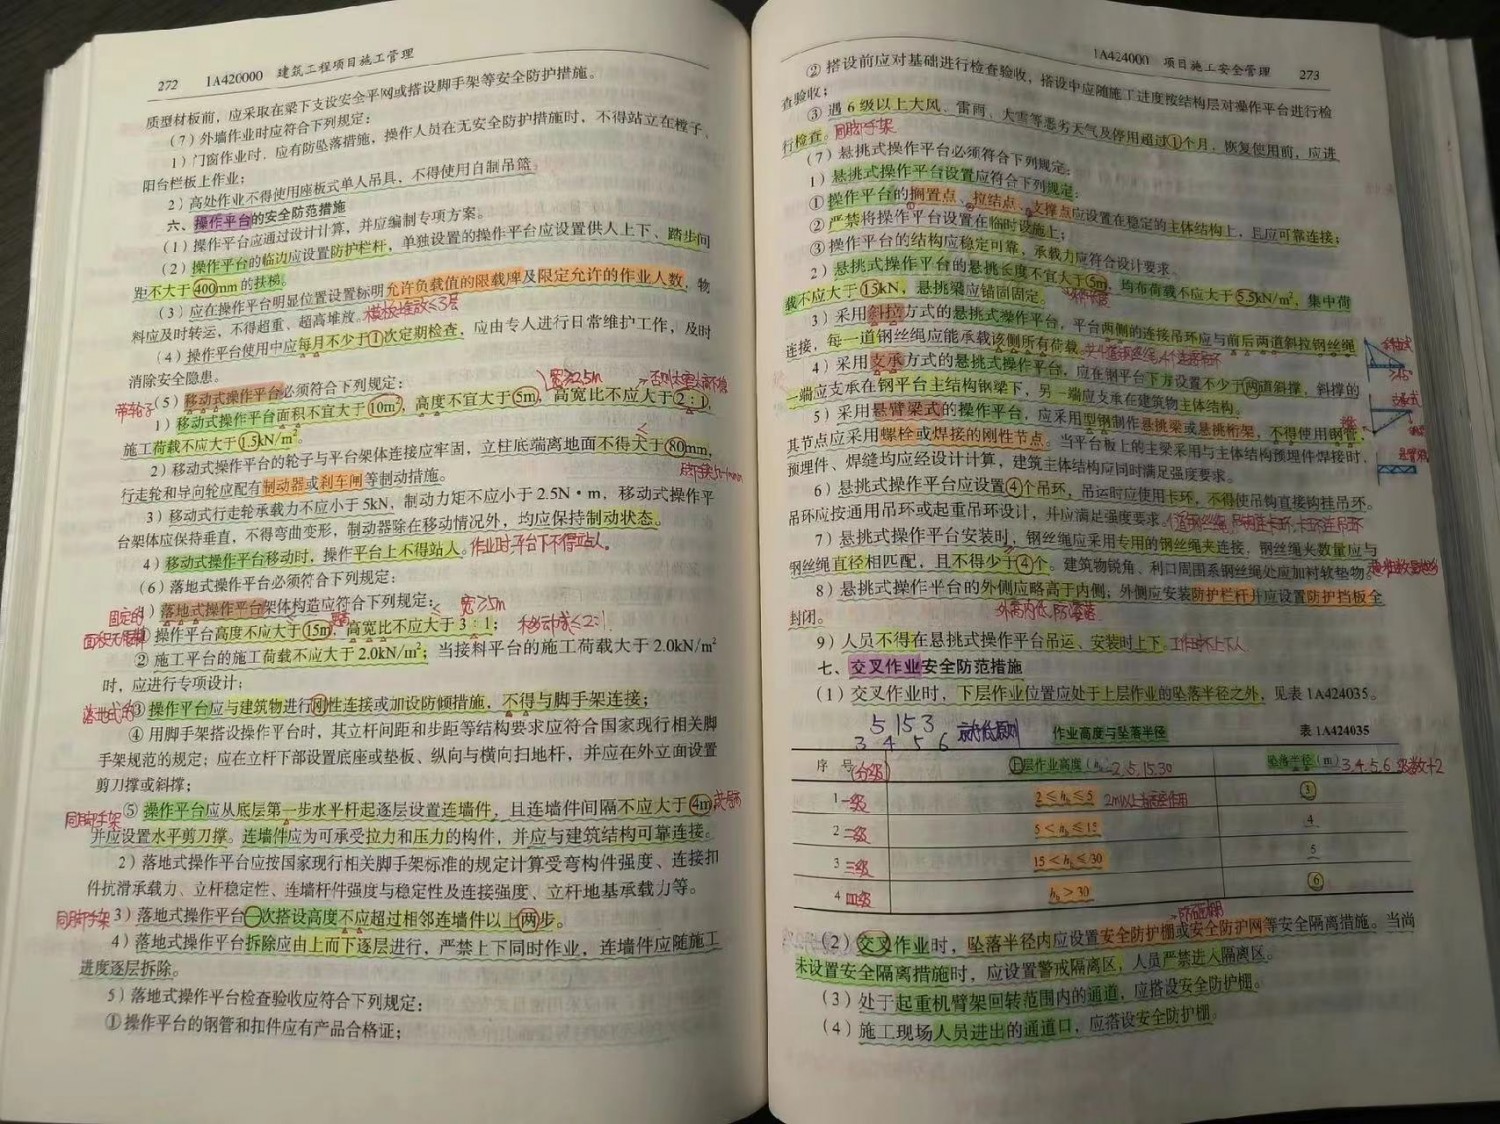 272 1A420000 建筑工程项目施工管理
质型材板前，应采取在梁下支设安全平网或搭设脚手架等安全防护措施。
（7）外墙作业时应符合下列规定：
1）门窗作业时，应有防坠落措施，操作人员在无安全防护措施时，不得站立在樘子、
阳台栏板上作业；
2）高处作业不得使用座板式单人吊具，不得使用自制吊篮。
六、操作平台的安全防范措施
（1）操作平台应通过设计计算，并应编制专项方案。
（2）操作平台的临边应设置防护栏杆，单独设置的操作平台应设置供人上下、踏步间
距不大于400mm的扶梯。
（3）应在操作平台明显位置设置标明允许负载值的限载牌及限定允许的作业人数，物
料应及时转运，不得超重、超高堆放。模板堆放≤3层
（4）操作平台使用中应每月不少于1次定期检查，应由专人进行日常维护工作，及时
消除安全隐患。
（5）移动式操作平台必须符合下列规定： 宽≥2.5m
带轮子
1）移动式操作平台面积不宜大于10m²，高度不宜大于5m，高宽比不应大于2：1，
施工荷载不应大于1.5kN/m²。
2）移动式操作平台的轮子与平台架体连接应牢固，立柱底端离地面不得大于80mm，
行走轮和导向轮应配有制动器或刹车闸等制动措施。
3）移动式行走轮承载力不应小于5kN，制动力矩不应小于2.5N·m，移动式操作平
台架体应保持垂直，不得弯曲变形，制动器除在移动情况外，均应保持制动状态。
4）移动式操作平台移动时，操作平台上不得站人。作业时平台下不得站人。
（6）落地式操作平台必须符合下列规定：
固定的
1）落地式操作平台架体构造应符合下列规定： 宽≥5m
①操作平台高度不应大于15m，高宽比不应大于3：1； 移动式≤2:1
②施工平台的施工荷载不应大于2.0kN/m²；当接料平台的施工荷载大于2.0kN/m²
时，应进行专项设计；
③操作平台应与建筑物进行刚性连接或加设防倾措施，不得与脚手架连接；
④用脚手架搭设操作平台时，其立杆间距和步距等结构要求应符合国家现行相关脚
手架规范的规定；应在立杆下部设置底座或垫板、纵向与横向扫地杆，并应在外立面设置
剪刀撑或斜撑；
⑤操作平台应从底层第一步水平杆起逐层设置连墙件，且连墙件间隔不应大于4m，
同脚手架
并应设置水平剪刀撑。连墙件应为可承受拉力和压力的构件，并应与建筑结构可靠连接。
2）落地式操作平台应按国家现行相关脚手架标准的规定计算受弯构件强度、连接扣
件抗滑承载力、立杆稳定性、连墙杆件强度与稳定性及连接强度、立杆地基承载力等。
同脚手架 3）落地式操作平台一次搭设高度不应超过相邻连墙件以上两步。
4）落地式操作平台拆除应由上而下逐层进行，严禁上下同时作业，连墙件应随施工
进度逐层拆除。
5）落地式操作平台检查验收应符合下列规定：
①操作平台的钢管和扣件应有产品合格证；
1A424000 项目施工安全管理 273
②搭设前应对基础进行检查验收，搭设中应随施工进度按结构层对操作平台进行检
查验收；
③遇6级以上大风、雷雨、大雪等恶劣天气及停用超过1个月，恢复使用前，应进
行检查。同脚手架
（7）悬挑式操作平台必须符合下列规定：
1）悬挑式操作平台设置应符合下列规定：
①操作平台的搁置点、拉结点、支撑点应设置在稳定的主体结构上，且应可靠连接；
②严禁将操作平台设置在临时设施上；
③操作平台的结构应稳定可靠，承载力应符合设计要求。
2）悬挑式操作平台的悬挑长度不宜大于5m，均布荷载不应大于5.5kN/m²，集中荷
载不应大于15kN，悬挑梁应锚固固定。
3）采用斜拉方式的悬挑式操作平台，平台两侧的连接吊环应与前后两道斜拉钢丝绳
连接，每一道钢丝绳应能承载该侧所有荷载。
4）采用支承方式的悬挑式操作平台，应在钢平台下方设置不少于两道斜撑，斜撑的
一端应支承在钢平台主结构钢梁下，另一端应支承在建筑物主体结构。
5）采用悬臂梁式的操作平台，应采用型钢制作悬挑梁或悬挑桁架，不得使用钢管，
其节点应采用螺栓或焊接的刚性节点。当平台板上的主梁采用与主体结构预埋件焊接时，
预埋件、焊缝均应经设计计算，建筑主体结构应同时满足强度要求。
6）悬挑式操作平台应设置4个吊环，吊运时应使用卡环，不得使吊钩直接钩挂吊环。
吊环应按通用吊环或起重吊环设计，并应满足强度要求。
7）悬挑式操作平台安装时，钢丝绳应采用专用的钢丝绳夹连接，钢丝绳夹数量应与
钢丝绳直径相匹配，且不得少于4个。建筑物锐角、利口周围系钢丝绳处应加衬软垫物。
8）悬挑式操作平台的外侧应略高于内侧；外侧应安装防护栏杆并应设置防护挡板全
封闭。 外高内低，防滑落
9）人员不得在悬挑式操作平台吊运、安装时上下。
七、交叉作业安全防范措施
（1）交叉作业时，下层作业位置应处于上层作业的坠落半径之外，见表1A424035。
5 15 3
3 4 5 6 就低原则
作业高度与坠落半径 表1A424035
序 号（分级） 上层作业高度（hb） 2,5,15,30 坠落半径（m）3,4,5,6 级数+2
1 一级 2≤hb≤5 2m以上高处作业 3
2 二级 5＜hb≤15 4
3 三级 15＜hb≤30 5
4 四级 hb＞30 6
（2）交叉作业时，坠落半径内应设置安全防护棚或安全防护网等安全隔离措施。当尚
未设置安全隔离措施时，应设置警戒隔离区，人员严禁进入隔离区。
（3）处于起重机臂架回转范围内的通道，应搭设安全防护棚。
（4）施工现场人员进出的通道口，应搭设安全防护棚。